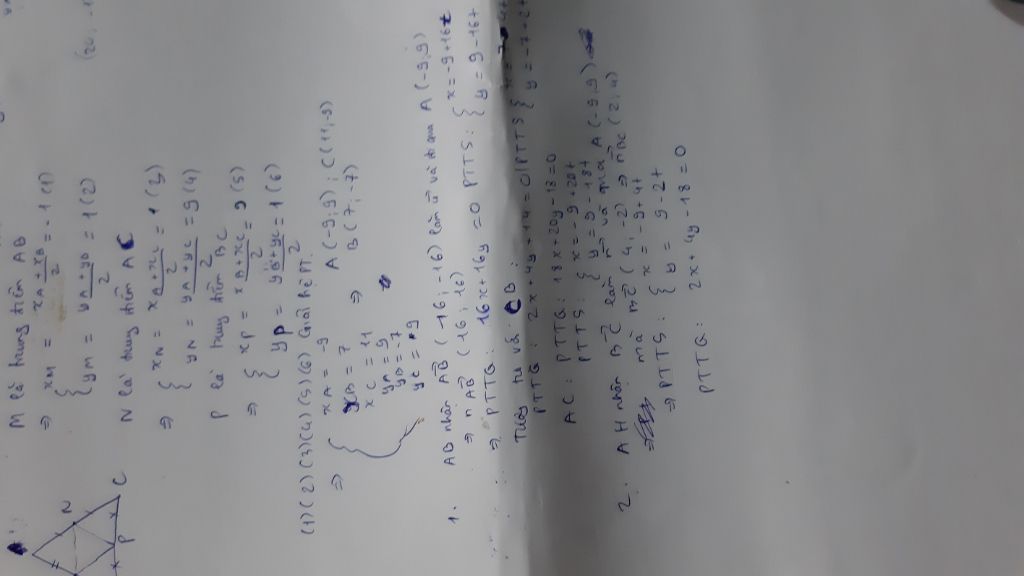 M là trung điểm AB
⇒ { xM = (xA + xB)/2 = -1 (1)
yM = (yA + yB)/2 = 1 (2)
N là trung điểm AC
⇒ { xN = (xA + xC)/2 = 1 (3)
yN = (yA + yC)/2 = 9 (4)
P là trung điểm BC
⇒ { xP = (xA + xC)/2 = 9 (5)
yP = (yB + yC)/2 = 1 (6)
(1)(2)(3)(4)(5)(6) Giải hệ PT.
⇒ { xA = -9
xB = 7
xC = 11 ⇒ A(-9;9); C(11;-9)
yA = 9 B(7;-7)
yB = -7
yC = 9
1. AB nhận AB (16, -16) làm u và đi qua A(-9;9)
⇒ nAB (16; 16)
⇒ PTTQ: 16x + 16y = 0 PTTS: { x = -9 + 16t
y = 9 - 16t
Tương tự với CB:
PTTQ: 2x + 4y + 14 = 0 PTTS {
y = -7 + 2t
AC: PTTQ: 18x + 20y - 18 = 0
PTTS: { x = -9 + 20t
y = 9 - 18t
2. AH nhận BC làm n và qua A(-9;9)
mà BC (4, -2) ⇒ nBC (2, 4)
⇒ PTTS: { x = -9 + 4t
y = 9 - 2t
PTTQ: 2x + 4y - 18 = 0
N
P
C